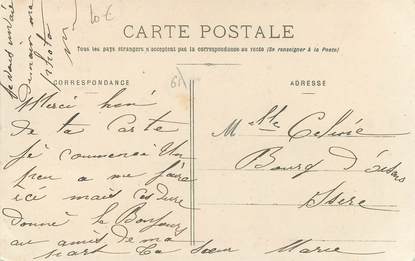 10 €
CARTE POSTALE
Tous les pays étrangers n'acceptent pas la correspondance au recto (Se renseigner à la Poste)
CORRESPONDANCE
ADRESSE
Merci
de ta Carte
je commence Un
peu a me faire
ici mais ces dure
donne le Bonjour
au amies de ma
part Ta Sœur Marie
Melle Celinie
Bourg d'oisans
Isere